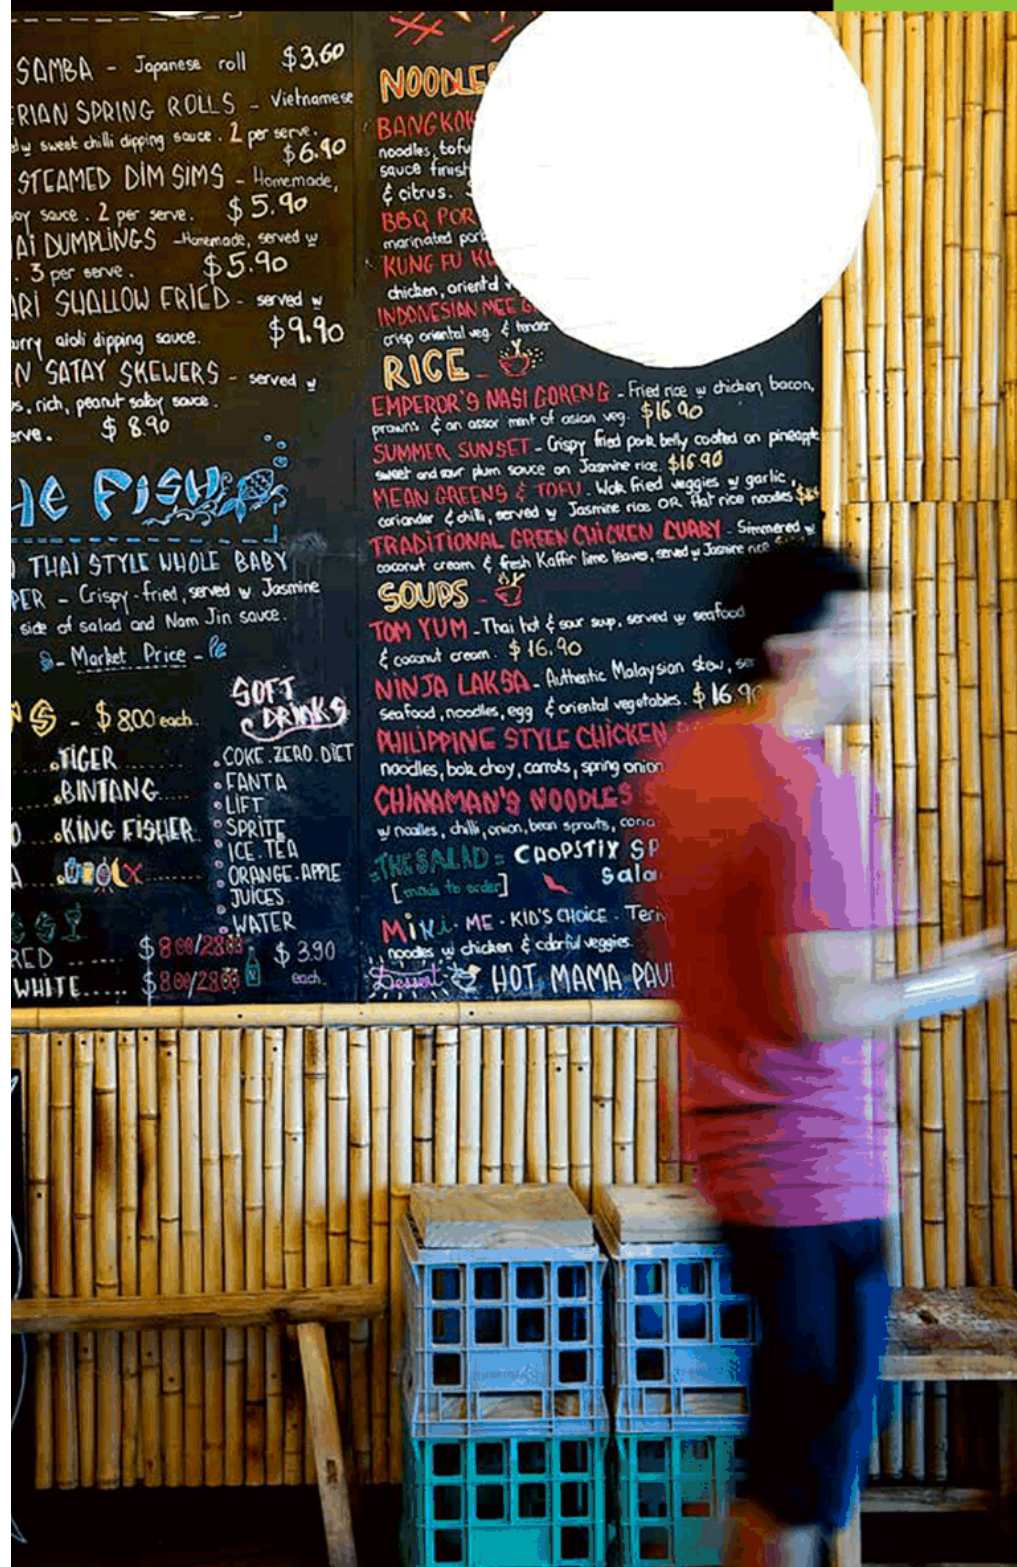 SAMBA - Japanese roll $3.60
RIAN SPRING ROLLS - Vietnamese
w sweet chilli dipping sauce. 2 per serve.
$6.90
STEAMED DIM SIMS - Homemade,
oy sauce. 2 per serve. $5.90
AI DUMPLINGS - Homemade, served w
. 3 per serve. $5.90
ARI SHALLOW FRIED - served w
urry aioli dipping sauce. $9.90
N SATAY SKEWERS - served w
s, rich, peanut satay sauce.
erve. $8.90
HE FISH
THAI STYLE WHOLE BABY
PER - Crispy-fried, served w Jasmine
side of salad and Nam Jin sauce.
- Market Price -
S - $8.00 each.
.TIGER
.BINTANG
.KING FISHER
RED ...... $8.00/28.00
WHITE ..... $8.00/28.00
SOFT
DRINKS
.COKE.ZERO.DIET
.FANTA
.LIFT
.SPRITE
.ICE.TEA
.ORANGE.APPLE
JUICES
.WATER
$3.90
each.
NOODLES
BANGKOK
noodles, tofu
sauce finish
& citrus.
BBQ POR
marinated pork
KUNG FU
chicken, oriental
INDONESIAN MEE G
crisp oriental veg. & tender
RICE
EMPEROR'S NASI GORENG - Fried rice w chicken, bacon,
prawns & an assor ment of asian veg. $16.90
SUMMER SUNSET - Crispy fried pork belly coated on pineapple
sweet and sour plum sauce on Jasmine rice. $16.90
MEAN GREENS & TOFU. Wok fried veggies w garlic,
coriander & chilli, served w Jasmine rice OR flat rice noodles
TRADITIONAL GREEN CHICKEN CURRY - Simmered w
coconut cream & fresh Kaffir lime leaves, served w Jasmine rice
SOUPS
TOM YUM - Thai hot & sour soup, served w seafood
& coconut cream. $16.90
NINJA LAKSA - Authentic Malaysian stew, se
seafood, noodles, egg & oriental vegetables. $16.90
PHILIPPINE STYLE CHICKEN
noodles, bok choy, carrots, spring onion
CHINAMAN'S NOODLES
w noodles, chilli, onion, bean sprouts, coria
THE SALAD = CHOPSTIX SP
[made to order] Sala
MiNi-ME - KID'S CHOICE - Teri
noodles w chicken & colorful veggies
Dessert HOT MAMA PAV